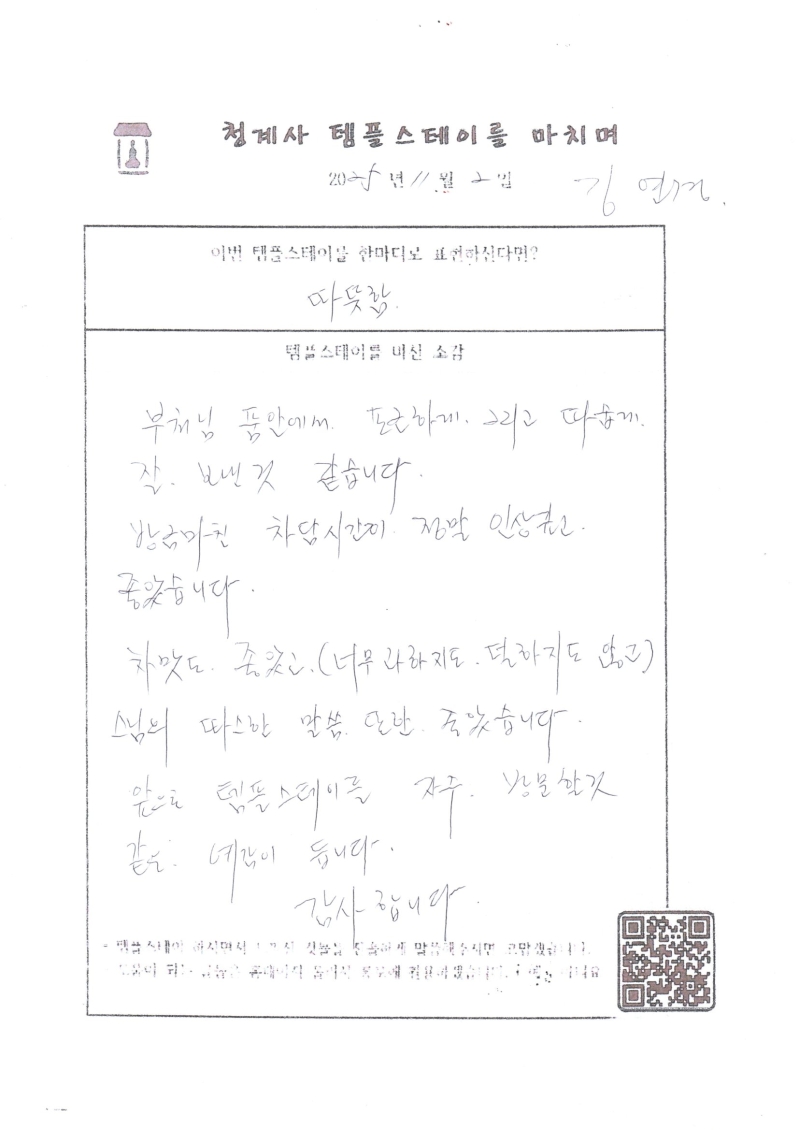 청계사 템플스테이를 마치며
2025년 11월 2일
김연
이번 템플스테이를 한마디로 표현하신다면?
따뜻함.
템플스테이를 마친 소감
부처님 품안에서. 포근하게. 그리고 따숩게.
잘. 보낸것 같습니다.
방금마친 차담시간이. 정말 인상깊고.
좋았습니다.
차맛도. 좋았고.(너무 과하지도. 덜하지도 않고)
스님의 따스한 말씀. 또한. 좋았습니다.
앞으로 템플스테이를 자주. 방문할것
같은. 예감이 듭니다.
감사합니다.
* 템플스테이 하시면서 느끼신 것들을 진솔하게 말씀해주시면 고맙겠습니다.
홈페이지